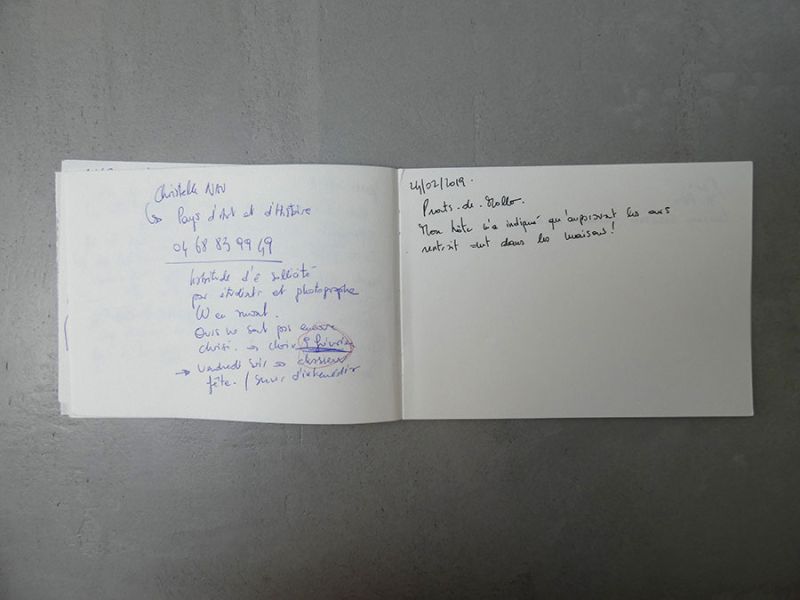 Christelle NAU
↳ Pays d'Art et d'Histoire
04 68 83 99 49
habitude d'ê sollicité
par étudiants et photographe
W en amont.
Ours ne sont pas encore
choisi. → choix 9 février
→ vendredi soir → chasseurs
fête. /
24/02/2019.
Prats-de-Mollo.
Mon hôte m'a indiqué qu'auparavant les ours
rentrait dans les maisons!